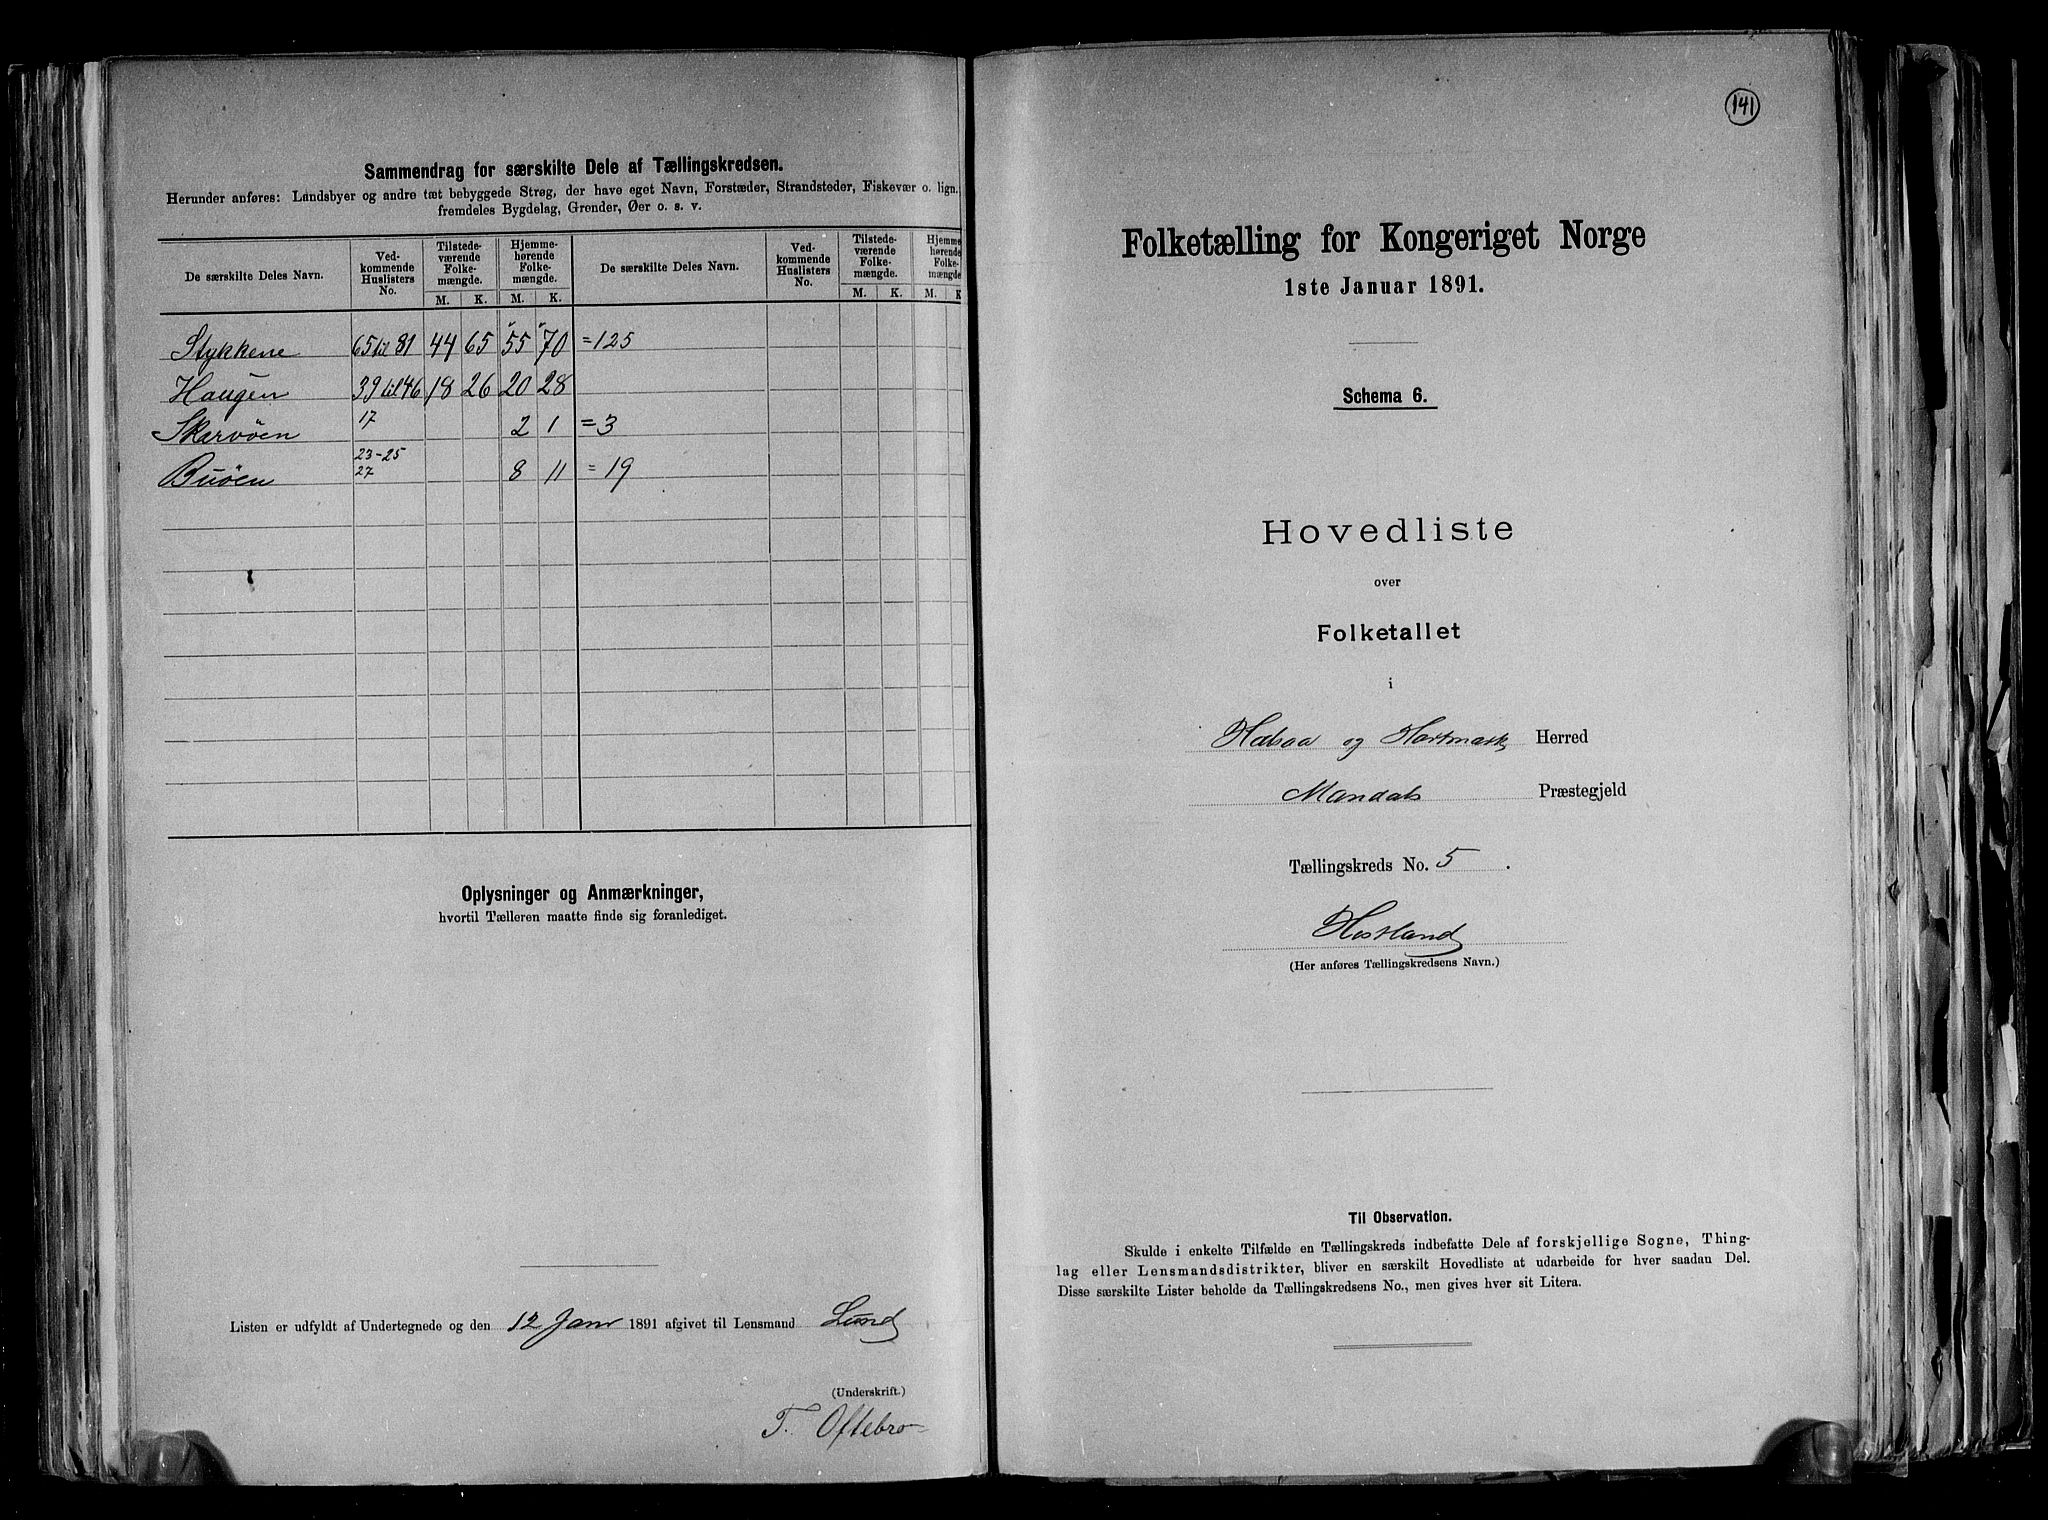 Sammendrag for særskilte Dele af Tællingskredsen.
Herunder anføres: Landsbyer og andre tæt bebyggede Strøg, der have eget Navn, Forstæder, Strandsteder, Fiskevær o. lign.
fremdeles Bygdelag, Grender, Øer o. s. v.
De særskilte Deles Navn. Ved-kommende Huslisters No. Tilstede-værende Folke-mængde. Hjemme-hørende Folke-mængde. De særskilte Deles Navn. Ved-kommende Huslisters No. Tilstede-værende Folke-mængde. Hjemme-hørende Folke-mængde
M. K. M. K. M. K. M. K
Stykkene 65 til 81 44 65 55 70 = 125
Haugen 39 til 46 18 26 20 28
Skarvöen 17 2 1 = 3
Buöen 23-25 27 8 11 = 19
Oplysninger og Anmærkninger,
hvortil Tælleren maatte finde sig foranlediget.
Listen er udfyldt af Undertegnede og den 12 Janr 1891 afgivet til Lensmand Lund
(Underskrift.)
T. Oftebro
141
Folketælling for Kongeriget Norge
1ste Januar 1891.
Schema 6.
Hovedliste
over
Folketallet
i
og Herred
Mandals Præstegjeld
Tællingskreds No. 5.
(Her anføres Tællingskredsens Navn.)
Til Observation.
Skulde i enkelte Tilfælde en Tællingskreds indbefatte Dele af forskjellige Sogne, Thing-
lag eller Lensmandsdistrikter, bliver en særskilt Hovedliste at udarbeide for hver saadan Del.
Disse særskilte Lister beholde da Tællingskredsens No., men gives hver sit Litera.